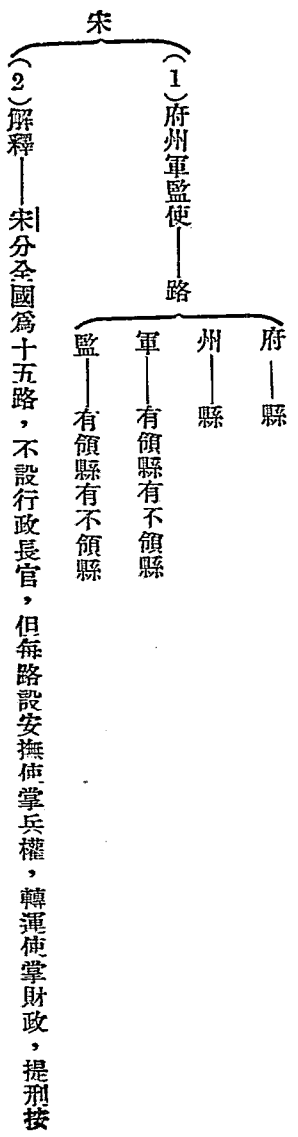 宋
(1)府州軍監使——路
府——縣
州——縣
軍——有領縣有不領縣
監——有領縣有不領縣
(2)解釋——宋分全國爲十五路，不設行政長官，但每路設安撫使掌兵權，轉運使掌財政，提刑按